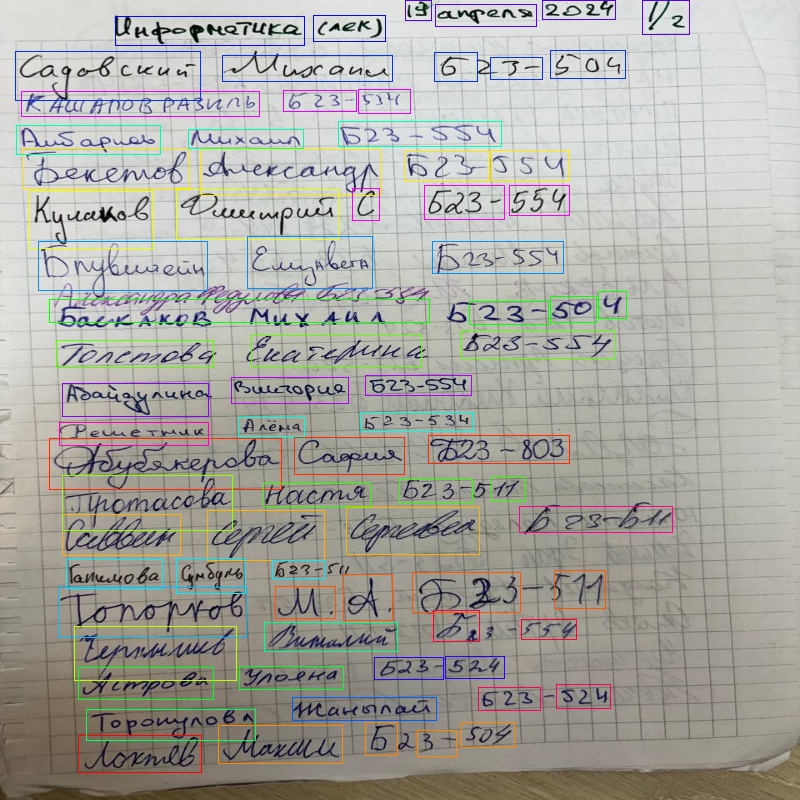 Информатика (лек) 19 апреля 2024 1/2
Садовский Михаил Б23-504
КАШАПОВ РАЗИЛЬ Б23-554
Амбариов Михаил Б23-554
Бекетов Александр Б23-554
Кулаков Дмитрий С Б23-554
Елизавета Б23-554
Александра Федулова Б23-534
Баскаков Михаил Б23-504
Толстова Екатерина Б23-554
Абайдулина Виктория Б23-554
Решетняк Алёна Б23-534
Абубякерова София Б23-803
Протасова Настя Б23-511
Саввин Сергей Сергеевич Б23-Б11
Галимова Сумбуль Б23-511
Топорков М. А. Б23-511
Чернышев Виталий Б23-554
Астрова Ульяна Б23-524
Торокулова Жанылай Б23-524
Локтев Максим Б23-504